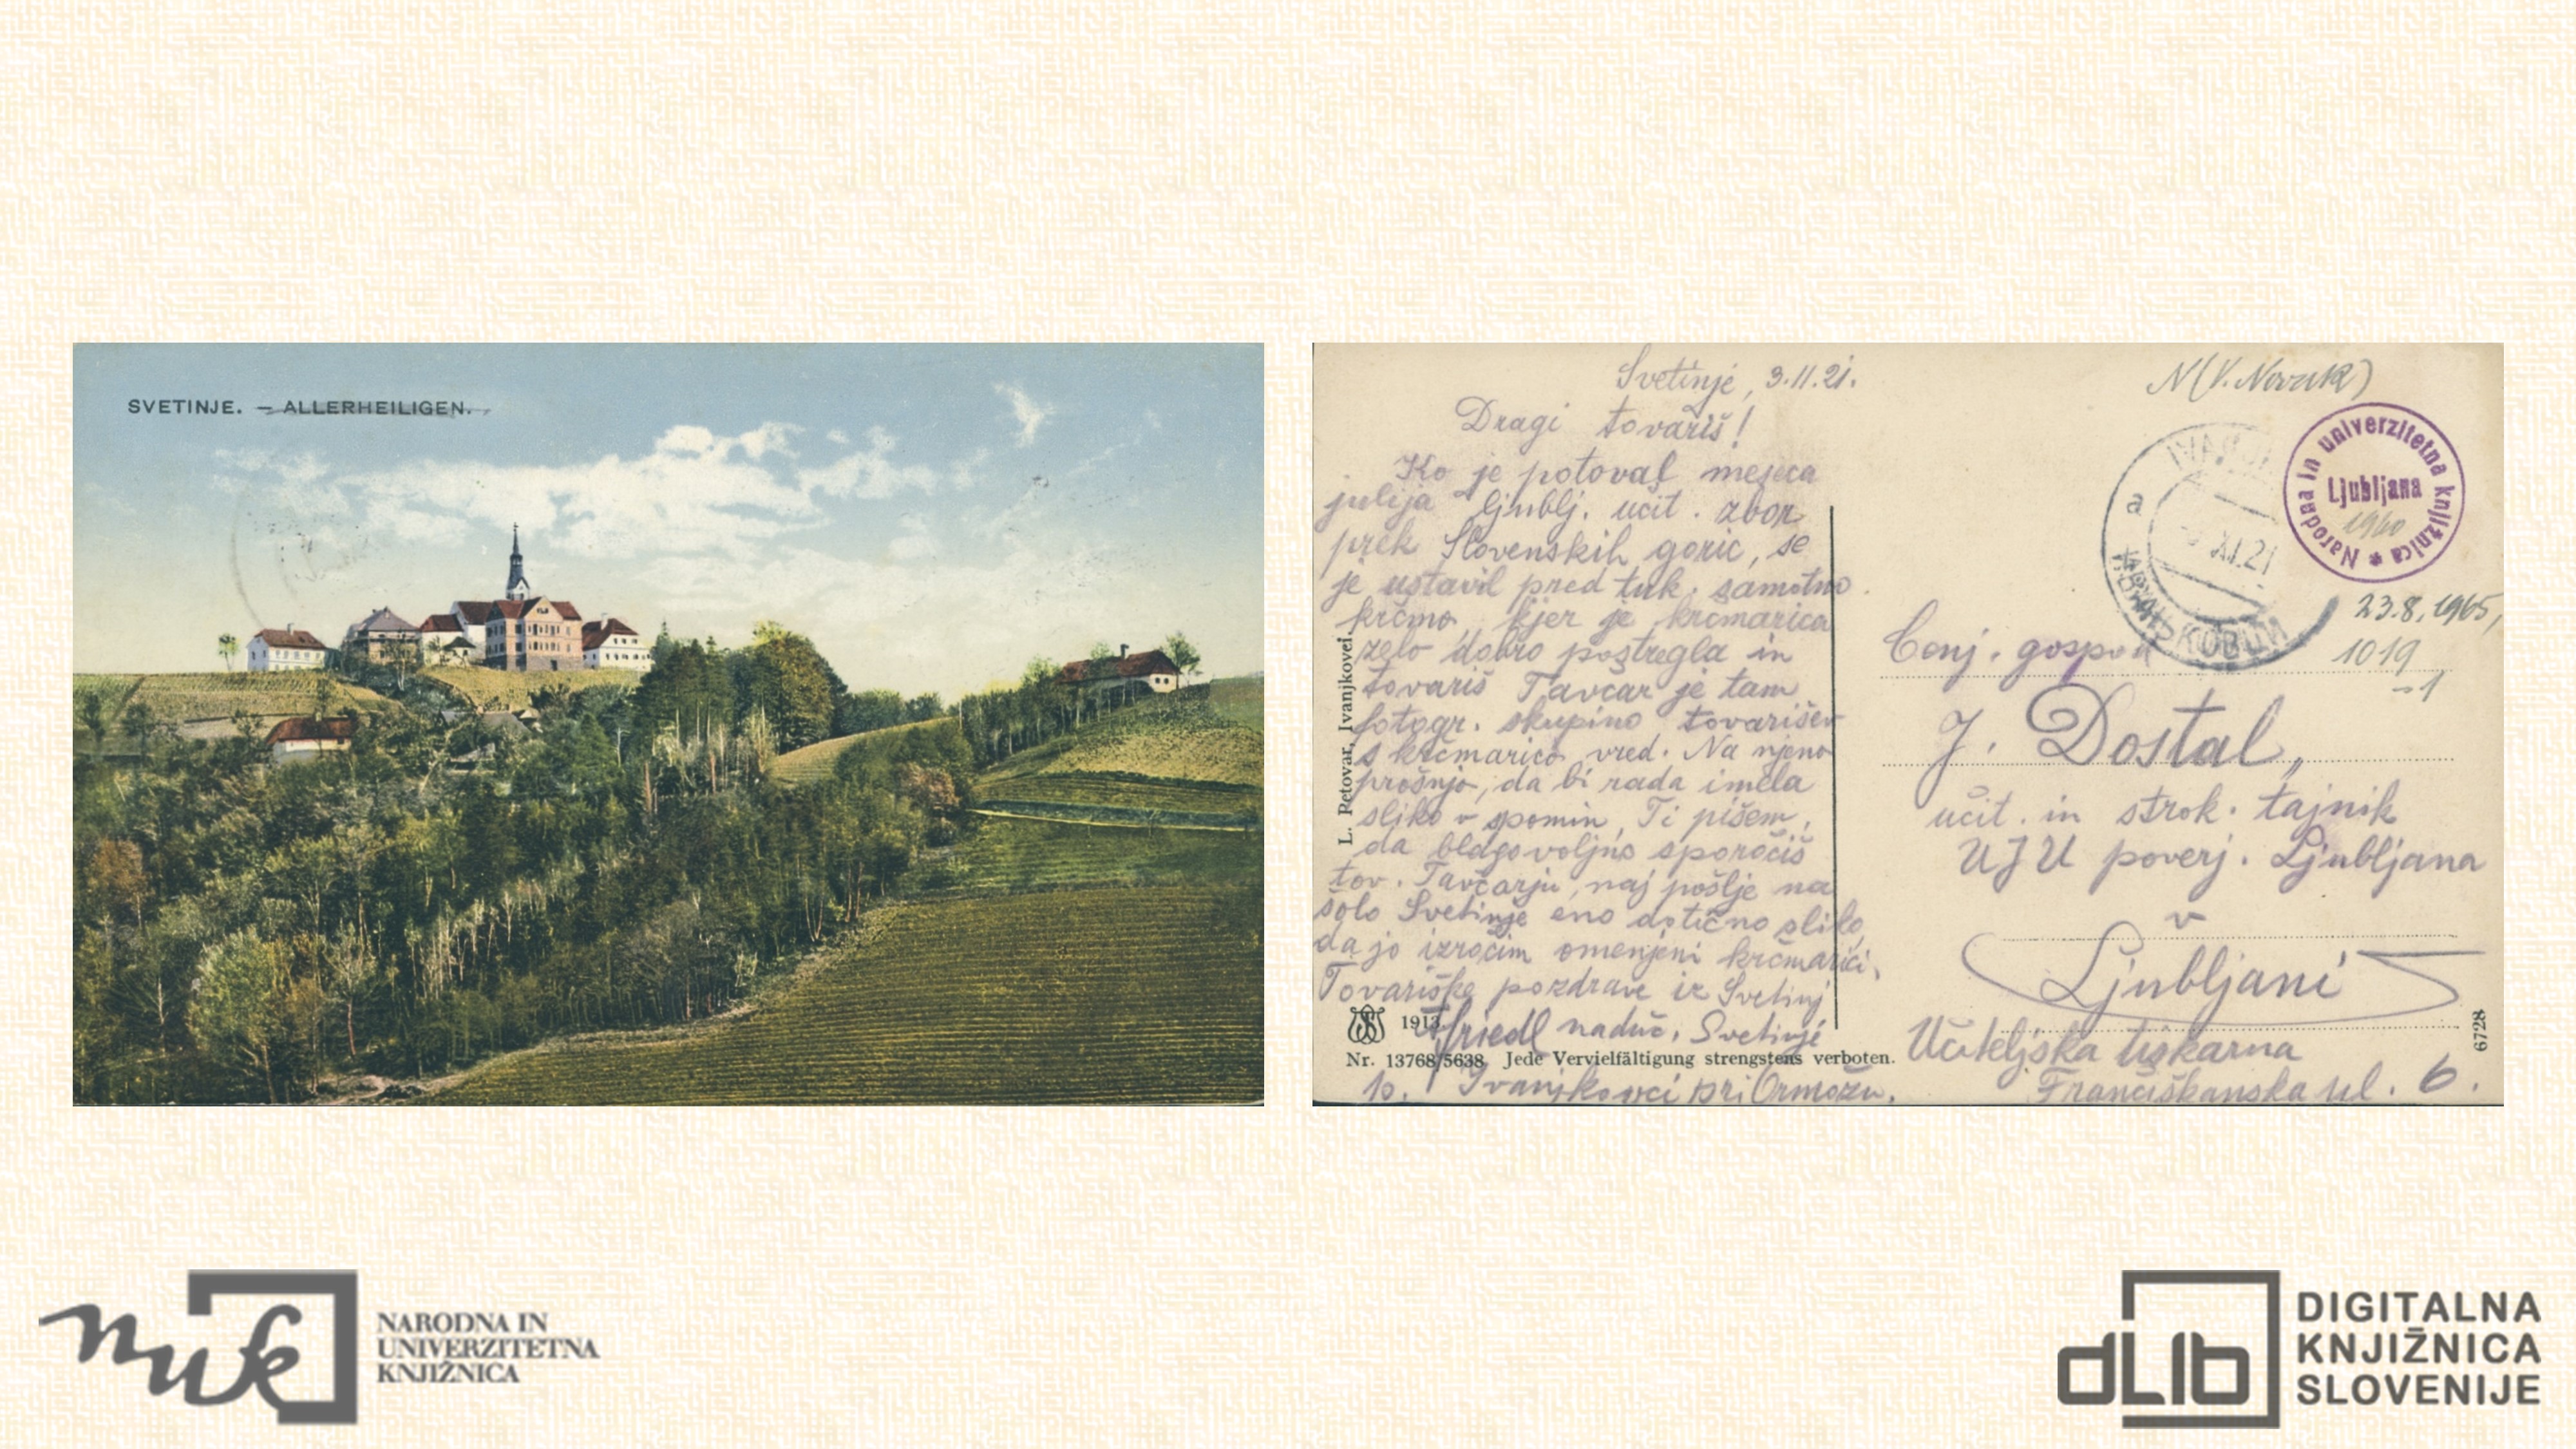 SVETINJE. – ALLERHEILIGEN.
Svetinje, 3.11.21.
Dragi tovariš!
Ko je potoval meseca
julija ljublj. učit. zbor
prek Slovenskih goric, se
je ustavil pred tuk. samotno
krčmo, kjer je krčmarica
zelo dobro postregla in
tovariš Tavčar je tam
fotogr. skupino tovarišev
s krčmarico vred. Na njeno
prošnjo, da bi rada imela
sliko v spomin, Ti pišem,
da blagovoljno sporočiš
tov. Tavčarju, naj pošlje na
šolo Svetinje eno dotično sliko,
da jo izročim omenjeni krčmarici.
Tovariške pozdrave iz Svetinj
naduč. Svetinje
p. Ivanjkovci pri Ormožu.
L. Petovar, Ivanjkovci.
1913
Nr. 13768/5638 Jede Vervielfältigung strengstens verboten.
N (V. Novak)
Narodna in univerzitetna knjižnica
Ljubljana
1960
a
XI.21
23.8.1965,
1019
-1
Cenj. gospod
J. Dostal,
učit. in strok. tajnik
UJU poverj. Ljubljana
v
Ljubljani
Učiteljska tiskarna
Frančiškanska ul. 6.
6728
nuk
NARODNA IN
UNIVERZITETNA
KNJIŽNICA
dLib
DIGITALNA
KNJIŽNICA
SLOVENIJE